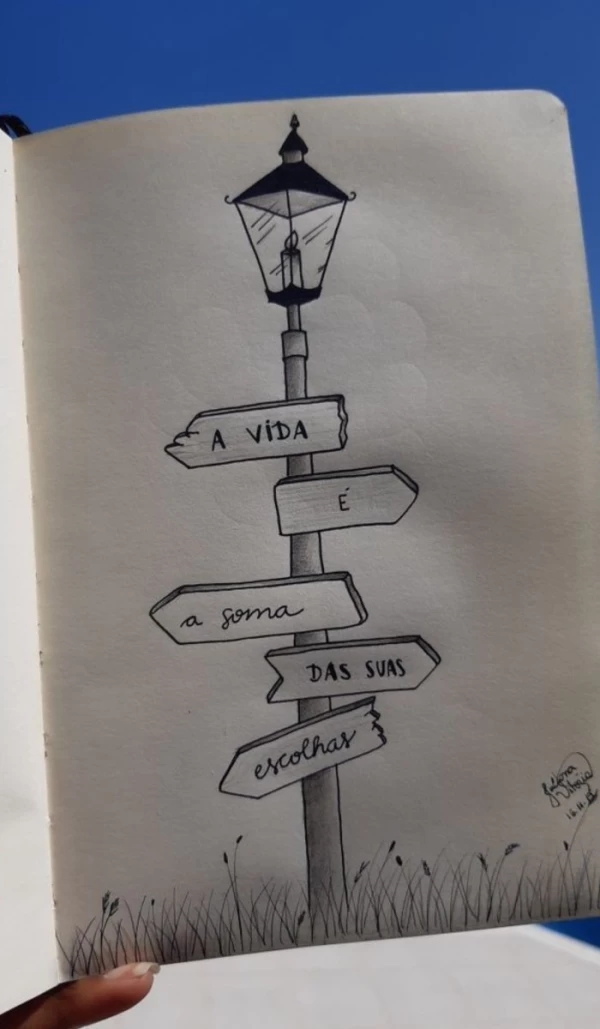 A ViDA
É
a soma
DAS SUAS
escolhas
Vitória